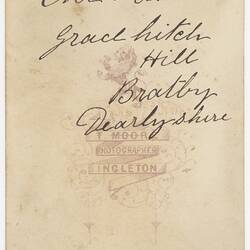 Grace hitch
Hill
Bratby
Dearlyshire
T MOORE
PHOTOGRAPHER
INGLETON